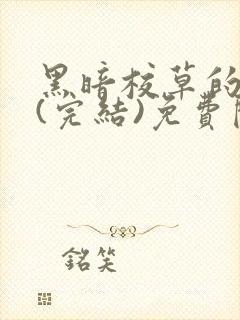 黑暗校草的
(完結)免費
銘笑